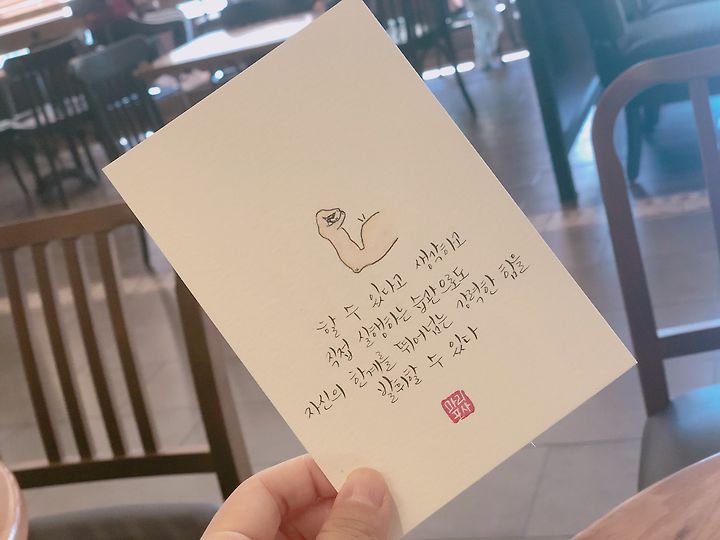 할 수 있다고 생각하고
직접 실행하는 습관으로도
자신의 한계를 뛰어넘는 강력한 힘을
발휘할 수 있다
마리
포사